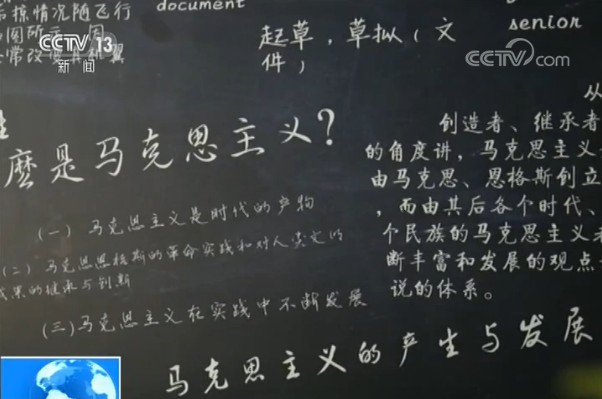 后掠情况随飞行
document
图所示
常改变其机翼
senior
起草，草拟（文
件）
CCTV 13
新闻
CCTV.com
从
麽是马克思主义？
创造者、继承者
的角度讲，马克思主义
由马克思、恩格斯创立
，而由其后各个时代、
个民族的马克思主义者
断丰富和发展的观点
说的体系。
（一）马克思主义是时代的产物
（二）马克思恩格斯的革命实践和对人类文明
成果的继承与创新
（三）马克思主义在实践中不断发展
马克思主义的产生与发展